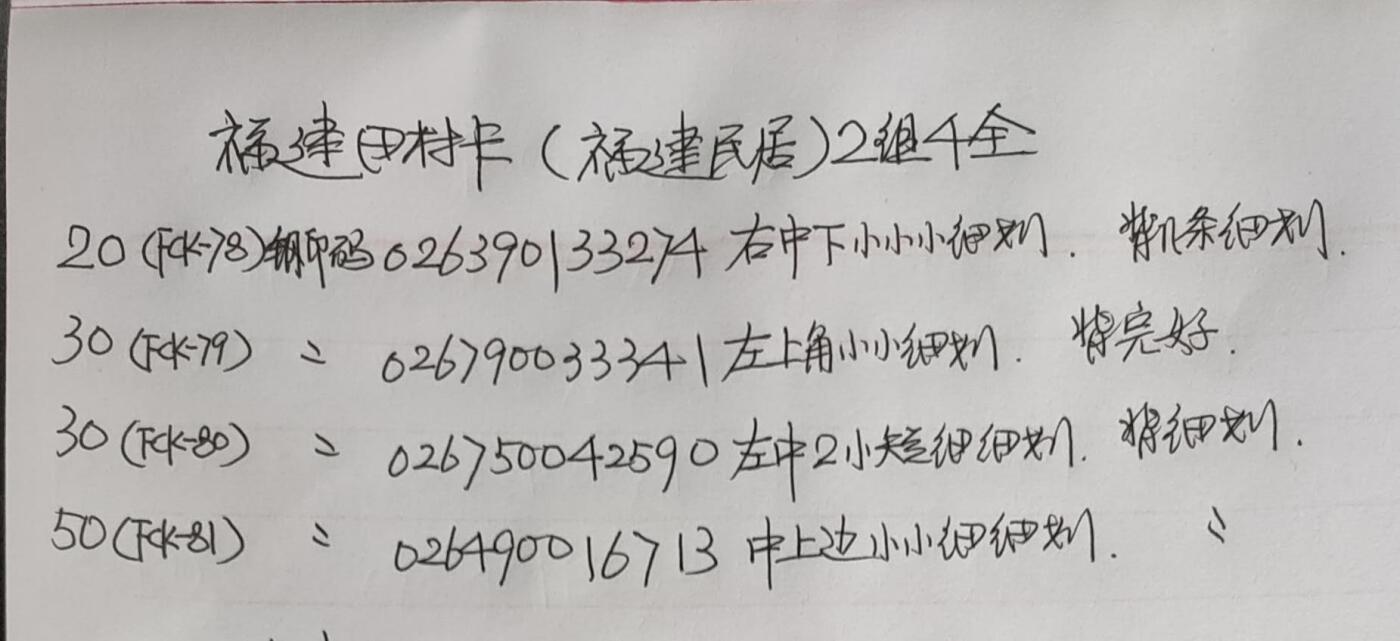 福建田村卡（福建民居）2组4全
20(FCK-78)钢印码026390133274右中下小小小细划. 背几条细划.
30(FCK-79) 〃 026790033341左上角小小细划. 背完好.
30(FCK-80) 〃 026750042590左中2小短细细划. 背细划.
50(FCK-81) 〃 026490016713中上边小小细细划. 〃